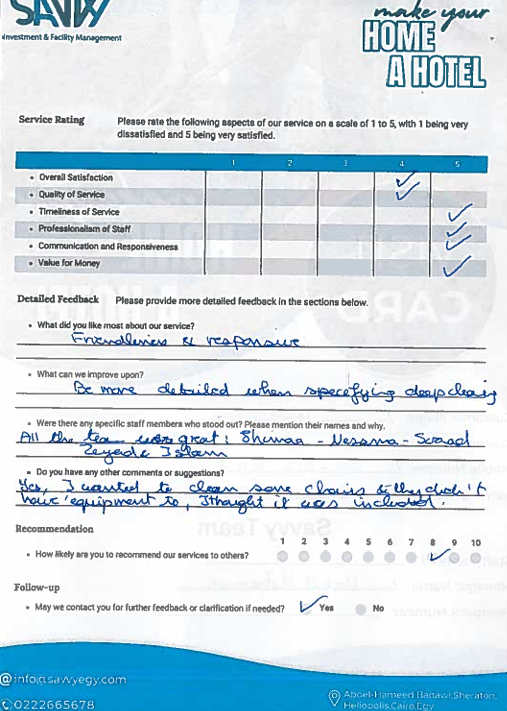 SAVVY
Investment & Facility Management
make your
HOME
A HOTEL
Service Rating
Please rate the following aspects of our service on a scale of 1 to 5, with 1 being very
dissatisfied and 5 being very satisfied.
1 2 3 4 5
• Overall Satisfaction ✓
• Quality of Service ✓
• Timeliness of Service ✓
• Professionalism of Staff ✓
• Communication and Responsiveness ✓
• Value for Money ✓
Detailed Feedback Please provide more detailed feedback in the sections below.
• What did you like most about our service?
Friendliness & responsive
• What can we improve upon?
Be more detailed when specefying deep cleaing
• Were there any specific staff members who stood out? Please mention their names and why.
All the team was great! Shimaa - Nesama - Souad
Zeyad & Islam
• Do you have any other comments or suggestions?
Yes, I wanted to clean some chairs & they didn't
have equipment to, I thought it was included.
Recommendation
1 2 3 4 5 6 7 8 9 10
• How likely are you to recommend our services to others? ✓
Follow-up
• May we contact you for further feedback or clarification if needed? ✓ Yes No
@info@savvyegy.com
0222665678
Abdel-Hameed Badawi,Sheraton,
Heliopolis,Cairo,Egy